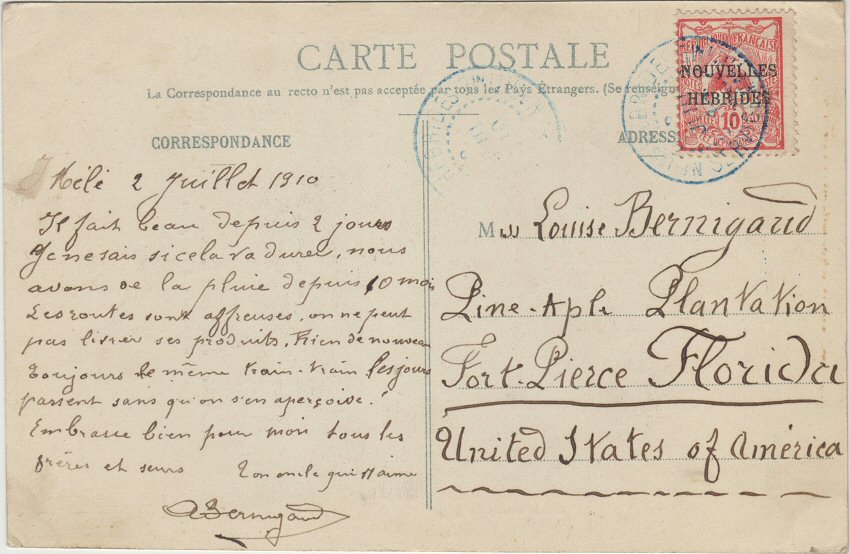 CARTE POSTALE
La Correspondance au recto n'est pas acceptée par tous les Pays Étrangers. (Se renseign
CORRESPONDANCE
ADRESS
RÉPUBLIQUE FRANÇAISE
NOUVELLES
HÉBRIDES
10
Mélé 2 Juillet 1910
Il fait beau depuis 2 jours
Je ne sais si cela va durer, nous
avons de la pluie depuis 10 mois
Les routes sont affreuses, on ne peut
pas livrer ses produits, Rien de nouveau
Toujours le même train-train les jours
passent sans qu'on s'en aperçoive.
Embrasse bien pour moi tous les
frères et seurs Ton oncle qui t'aime
ABernigaud
Miss Louise Bernigaud
Pine-Aple Plantation
Fort-Pierce Florida
United States of América